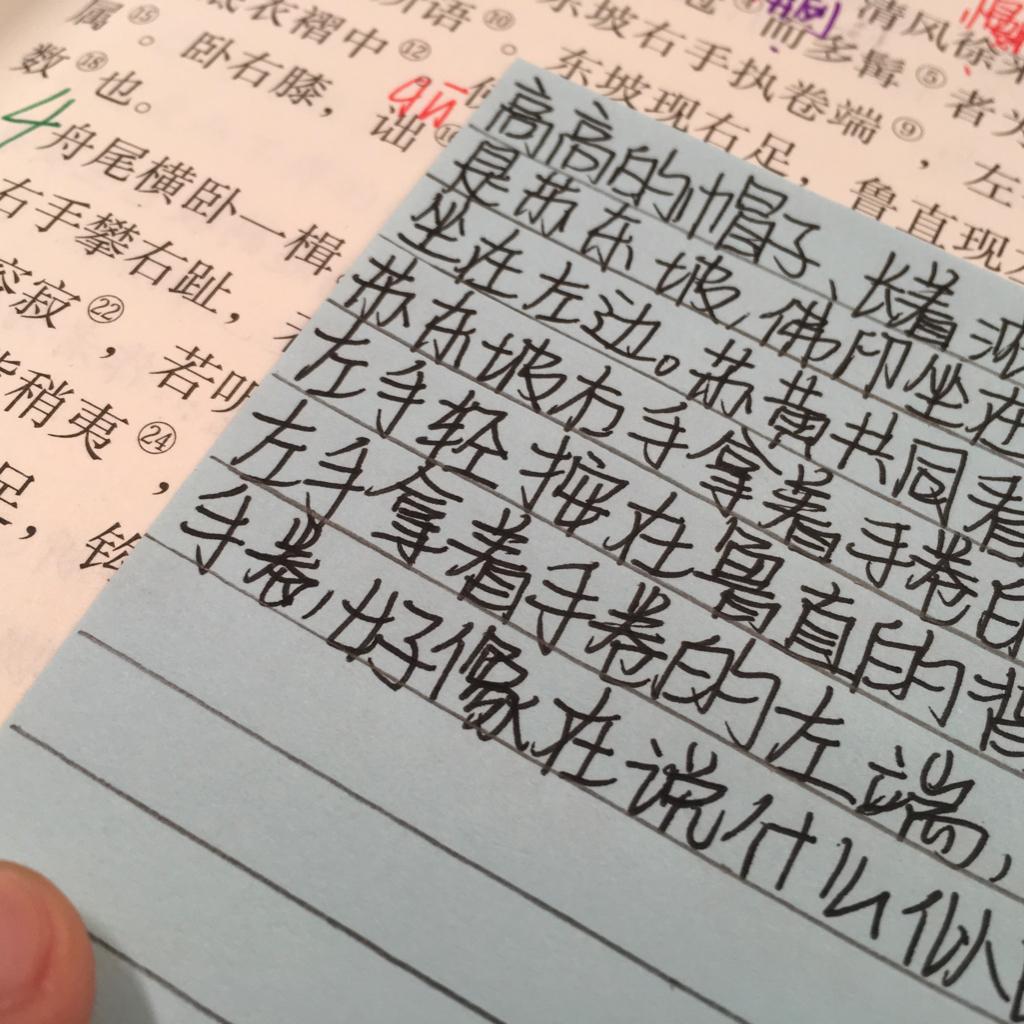 属。
数⑱也。
衣褶中⑫
卧右膝，诎
ān
语⑩。
东坡右手执卷端⑨，左
东坡现右足，鲁直现
而多髯⑤
清风徐
者为
4
舟尾横卧一楫
右手攀右趾，
容寂㉒，若
稍夷㉔，
足，
高高的帽子、长着
是苏东坡，佛印坐在
坐在左边。苏黄共同看
苏东坡右手拿着手卷的
左手轻按在鲁直的背
左手拿着手卷的左端，
手卷，好像在说什么似